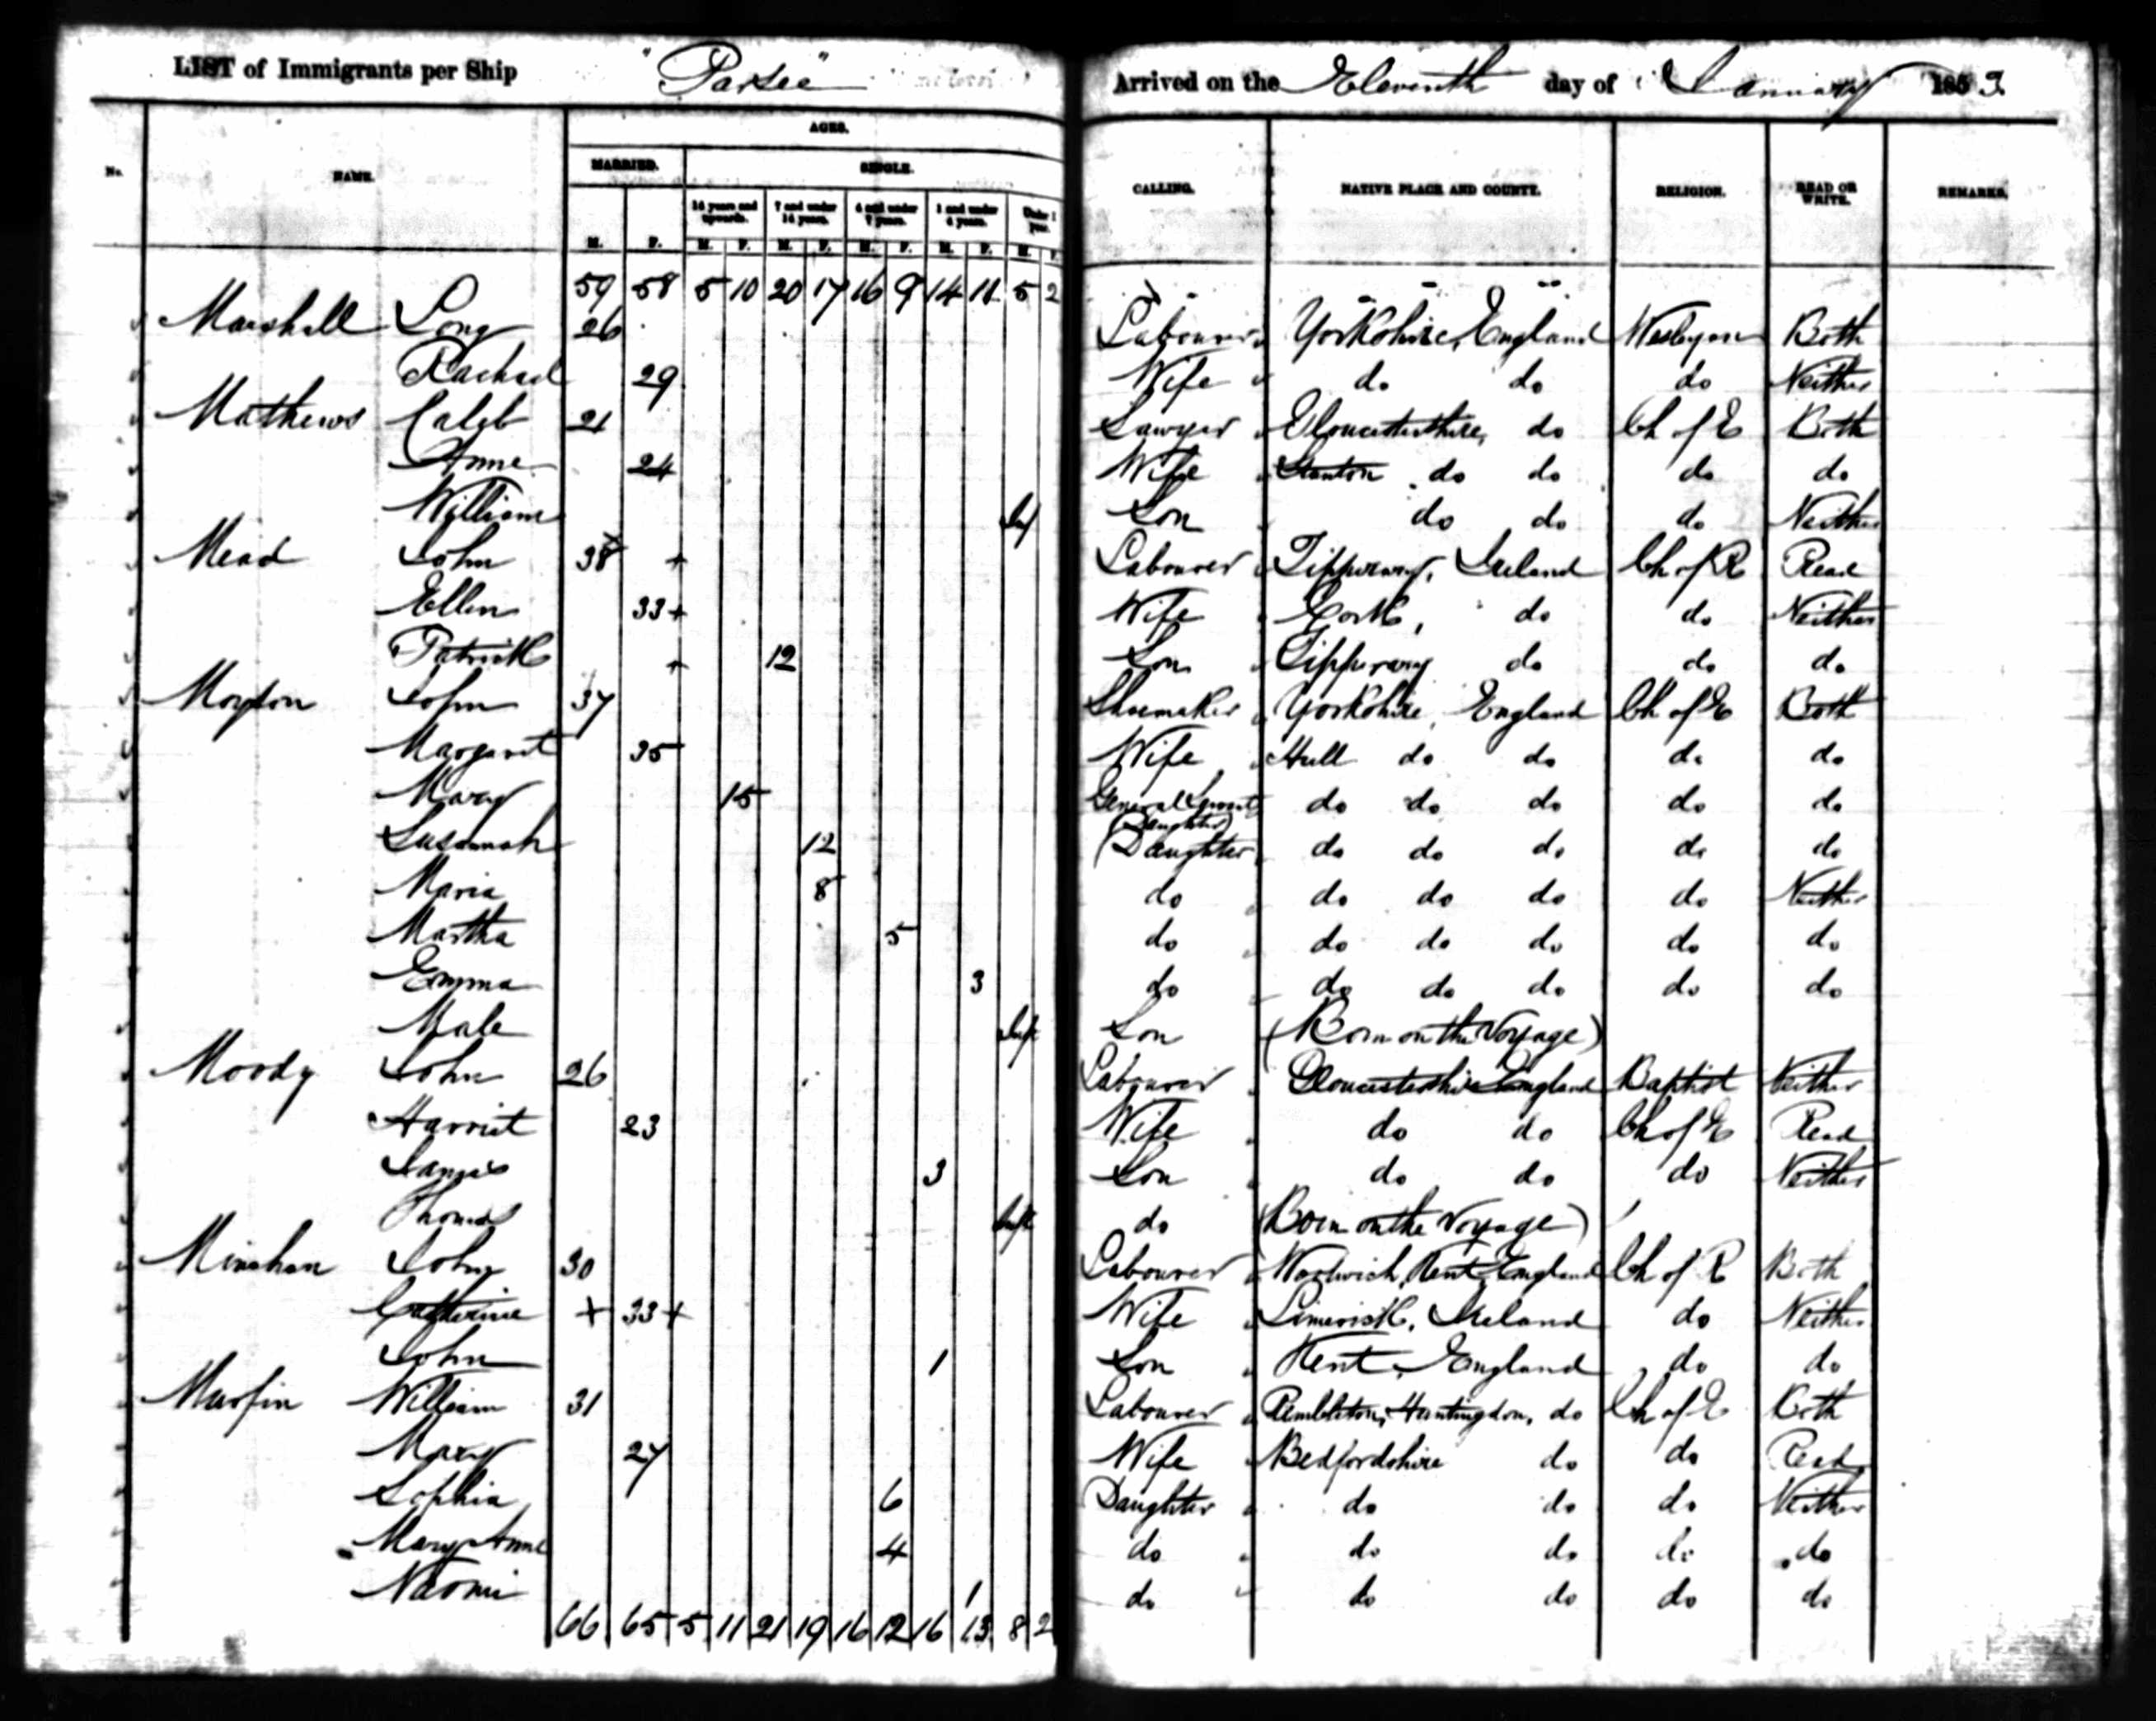 LIST of Immigrants per Ship "Parsee" Arrived on the Eleventh day of January 1853.
AGES.
No. NAME. MARRIED. SINGLE. CALLING. NATIVE PLACE AND COUNTY. RELIGION. READ OR WRITE. REMARKS.
14 years and upwards. 7 and under 14 years. 4 and under 7 years. 1 and under 4 years. Under 1 year.
M. F. M. F. M. F. M. F. M. F. M. F.
59 58 5 10 20 17 16 9 14 11 5 2
Marshall Long 26 Labourer Yorkshire, England Wesleyan Both
Rachael 29 Wife do do do Neither
Mathews Caleb 21 Sawyer Gloucestershire, do Ch of E Both
Anne 24 Wife do do do do
William Inf Son do do do Neither
Mead John 38 + Labourer Tipperary, Ireland Ch of R Read
Ellen 33 + Wife Cork, do do Neither
Patrick + 12 Son Tipperary do do do
Moyton John 37 Shoemaker Yorkshire, England Ch of E Both
Margaret 35 Wife Hull do do do do
Mary 15 General Servant (Daughter) do do do do do
Susannah 12 Daughter do do do do do
Maria 8 do do do do do Neither
Martha 5 do do do do do do
Emma 3 do do do do do do
Male Inft Son (Born on the Voyage)
Moody John 26 Labourer Gloucestershire England Baptist Neither
Harriet 23 Wife do do Ch of E Read
James 3 Son do do do Neither
Thomas Inft do (Born on the Voyage)
Minahan John 30 Labourer Woolwich, Kent, England Ch of R Both
Catherine + 33 + Wife Limerick, Ireland do Neither
John 1 Son Kent, England do do
Murfin William 31 Labourer Pembleton, Huntingdon, do Ch of E Both
Mary 27 Wife Bedfordshire do do Read
Sophia 6 Daughter do do do Neither
Mary Anne 4 do do do do do
Naomi 1 do do do do do
66 65 5 11 21 19 16 12 16 13 8 2